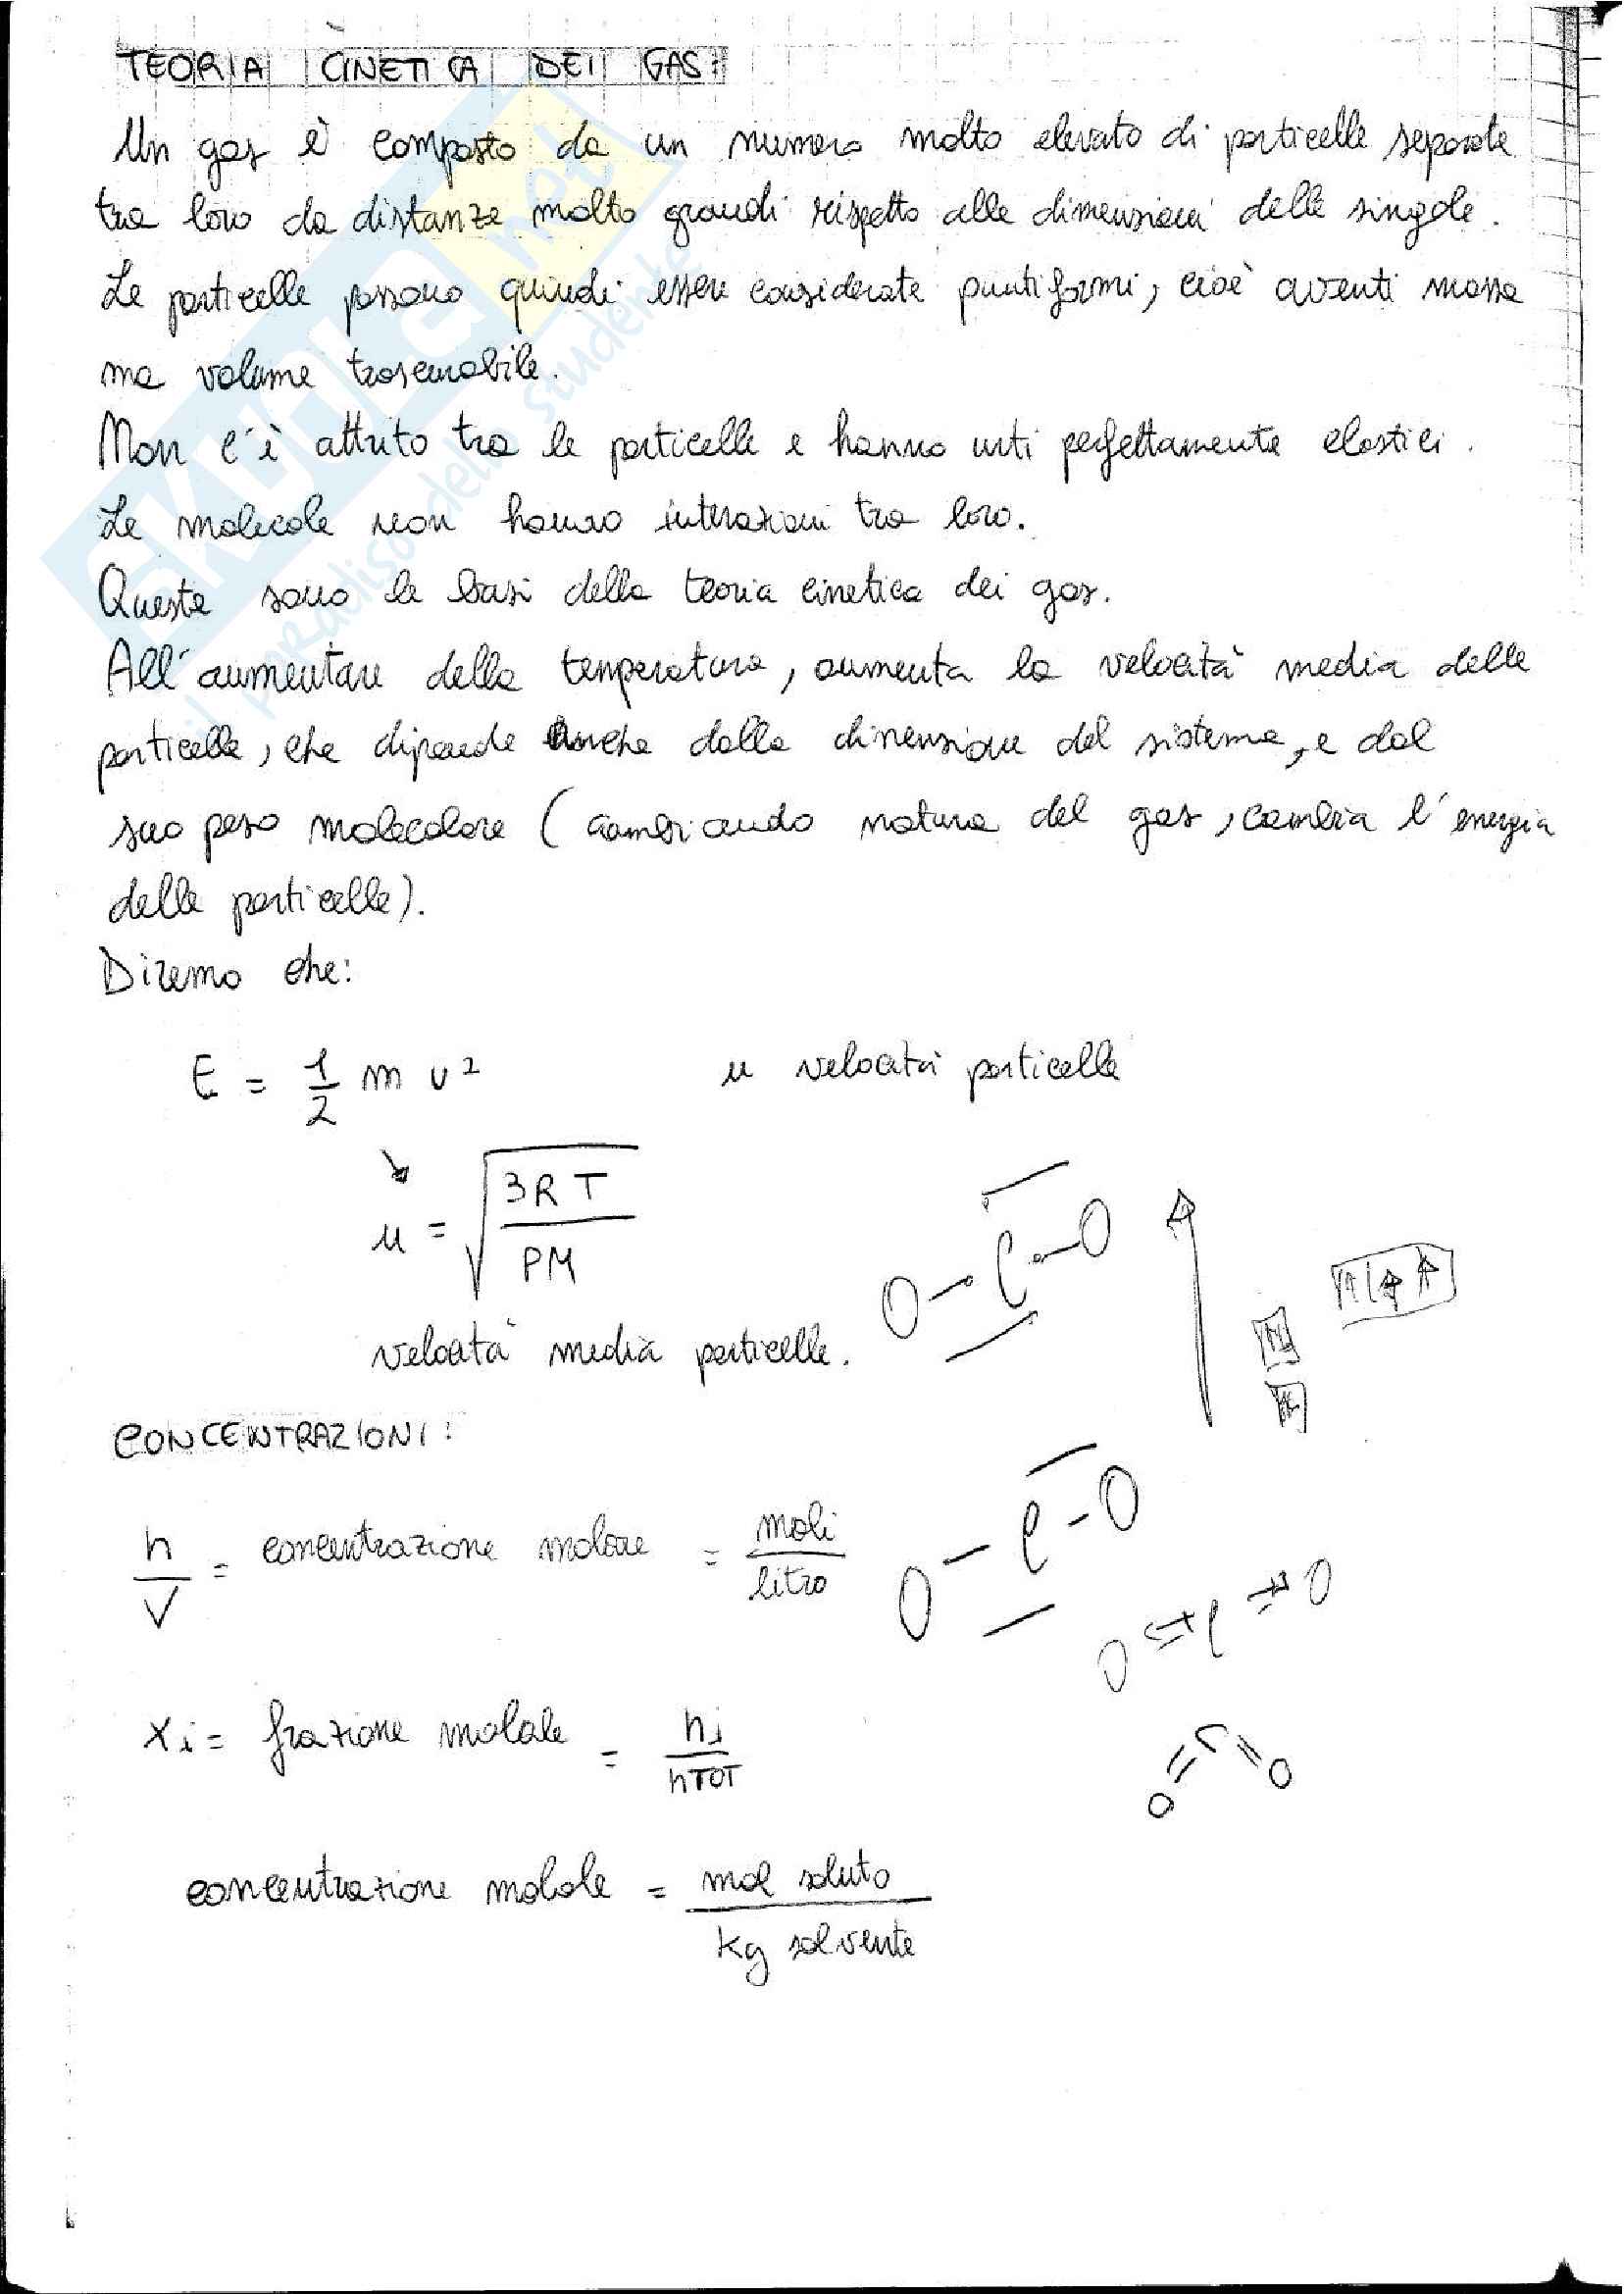 TEORIA CINETICA DEI GAS:
Un gas è composto da un numero molto elevato di particelle separate
tra loro da distanze molto grandi rispetto alle dimensioni delle singole.
Le particelle possono quindi essere considerate puntiformi, cioè aventi massa
ma volume trascurabile.
Non c'è attrito tra le particelle e hanno urti perfettamente elastici.
Le molecole non hanno interazioni tra loro.
Queste sono le basi della teoria cinetica dei gas.
All'aumentare della temperatura, aumenta la velocità media delle
particelle, che dipende anche dalla dimensione del sistema, e dal
suo peso molecolare (cambiando natura del gas, cambia l'energia
delle particelle).
Diremo che:
E = 1/2 m v² u velocità particelle
u = √(3RT/PM)
O-C-O
velocità media particelle.
CONCENTRAZIONI:
O-C-O
n/V = concentrazione molare = moli/litro
O=C=O
xi = frazione molale = ni/nTOT
O=C=O
concentrazione molale = mol soluto/kg solvente
SKUOLA.net
il paradiso dello studente